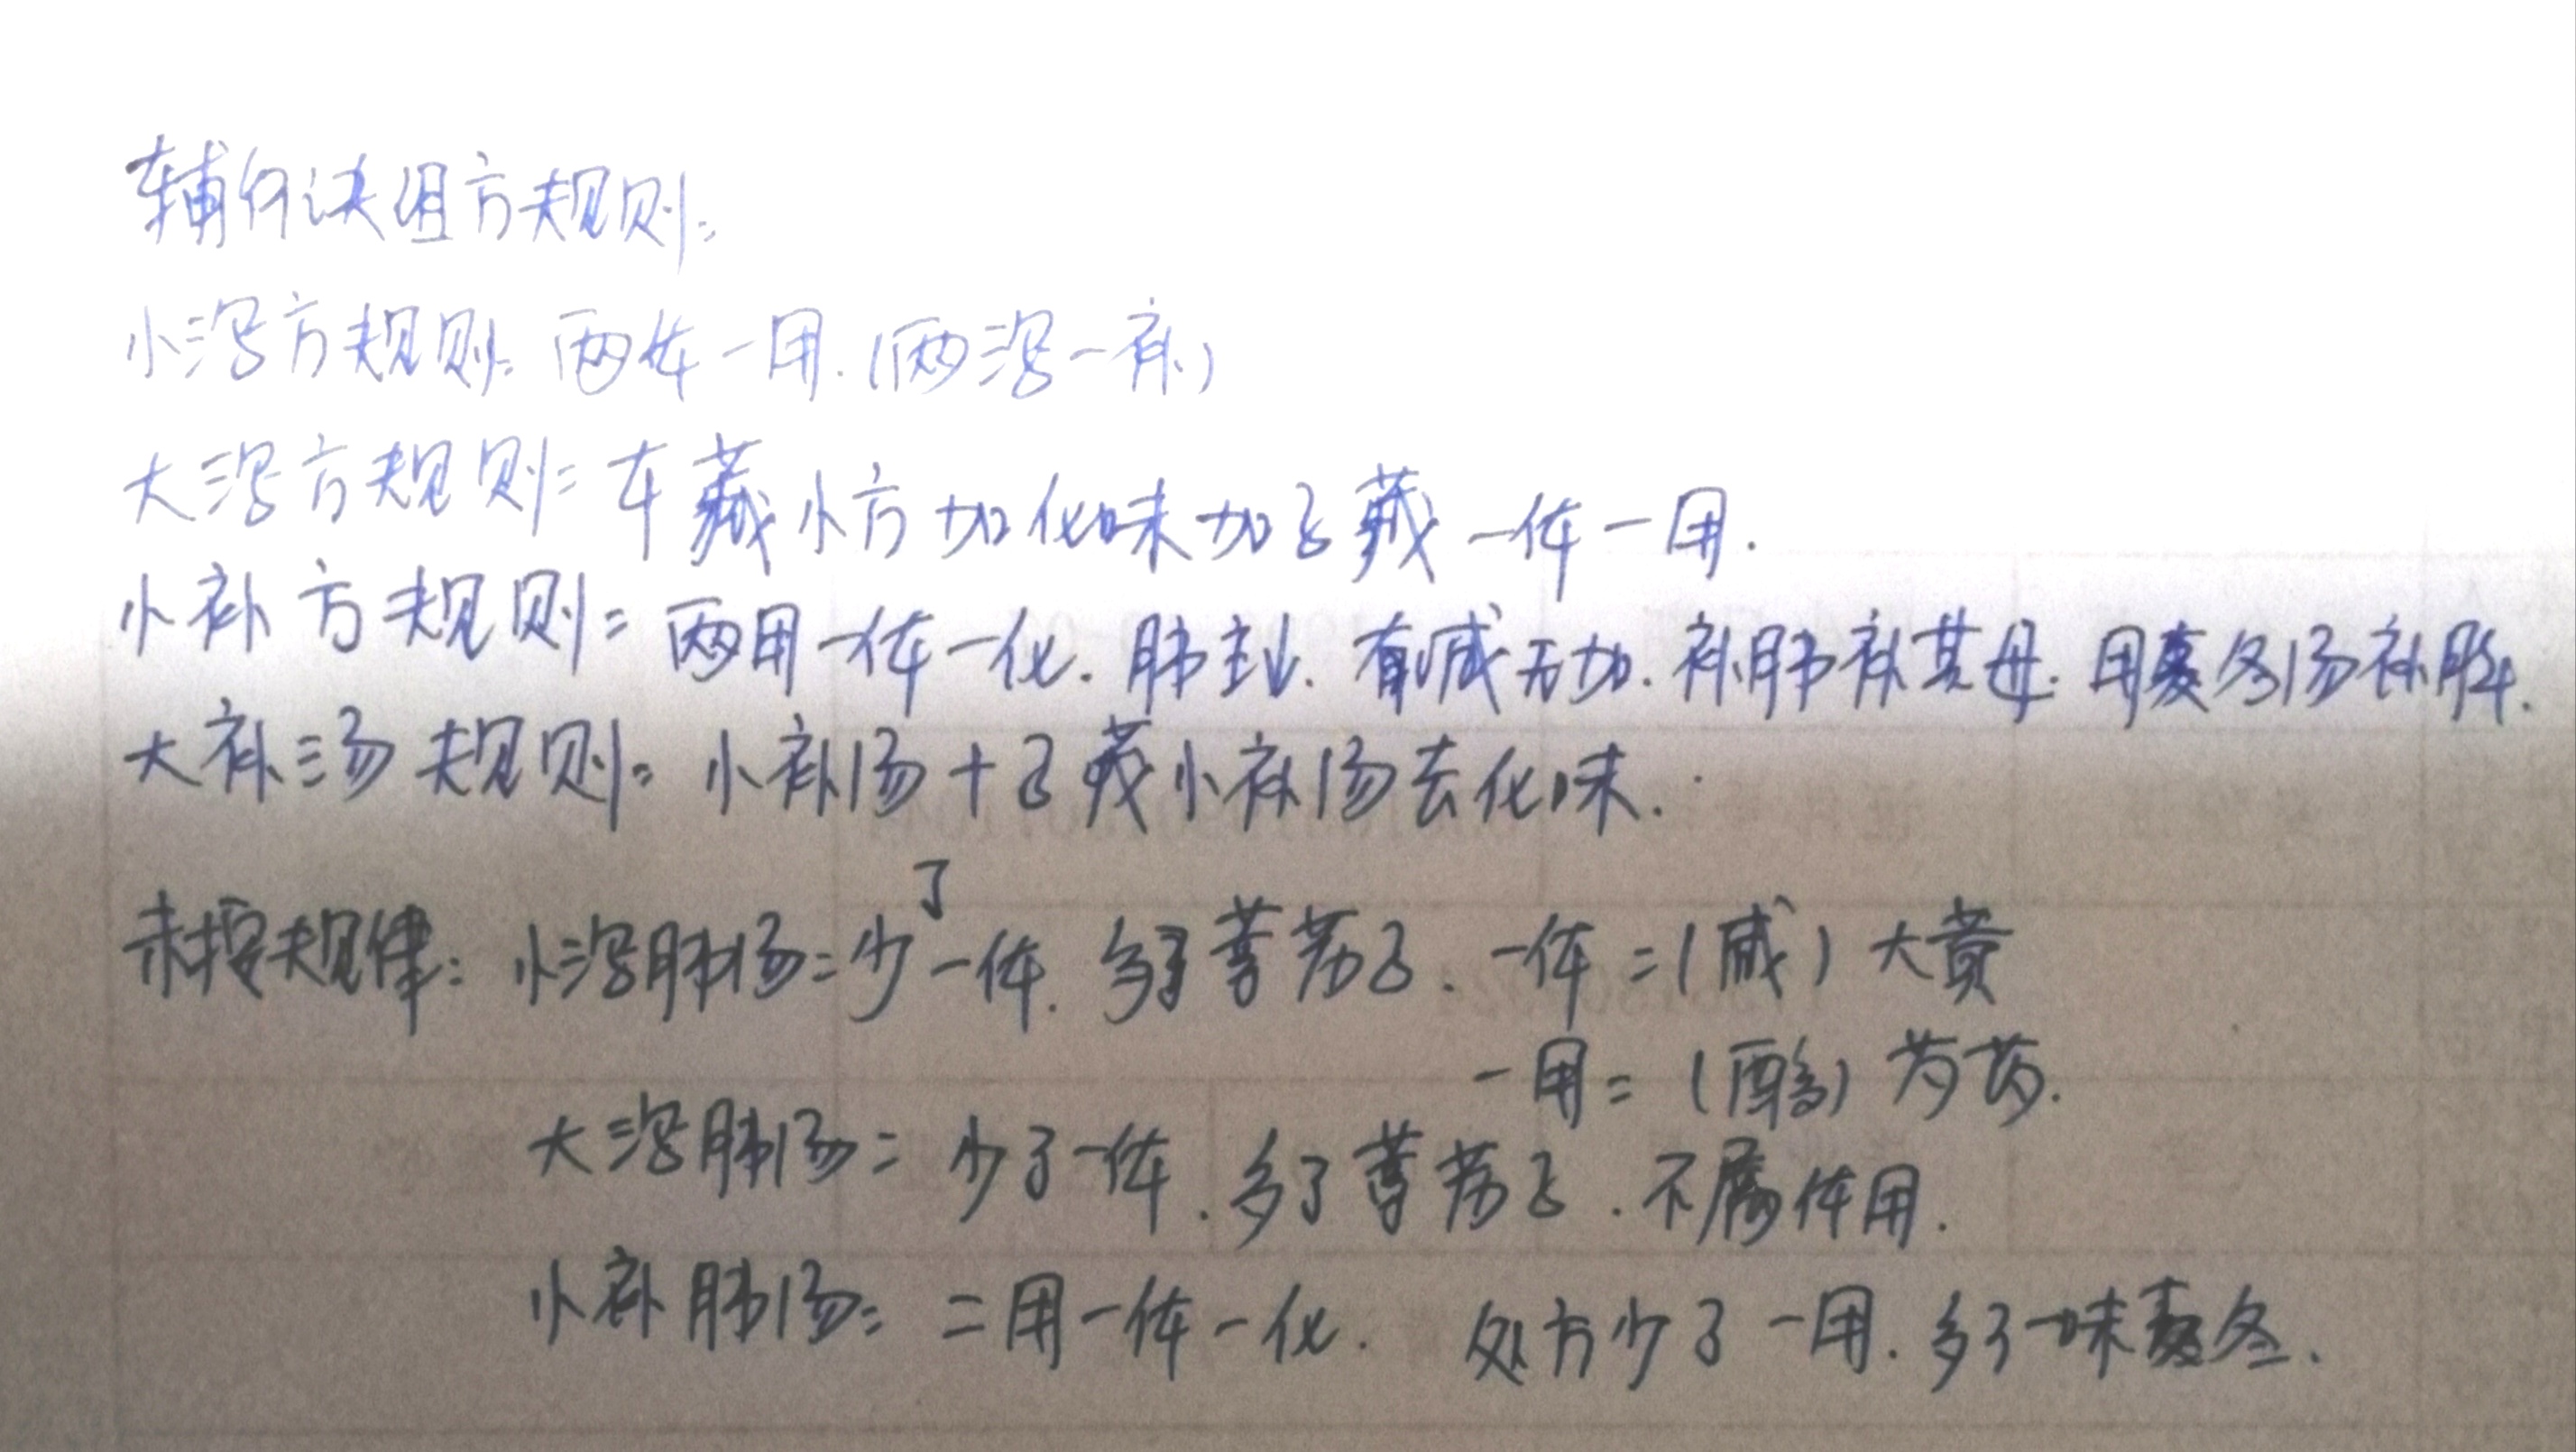 辅行诀组方规则:
小泻方规则:两体一用.(两泻一补)
大泻方规则:本藏小方加化味加子藏一体一用.
小补方规则:两用一体一化.肺主收.有减无加.补肺补其母.用麦冬汤补脾.
大补汤规则:小补汤+子藏小补汤去化味.
未按规律:小泻肺汤:少了一体.多了葶苈子.一体:(咸)大黄
一用:(酸)芍药.
大泻肺汤:少了一体.多了葶苈子.不属体用.
小补肺汤:二用一体一化.处方少了一用.多了一味麦冬.